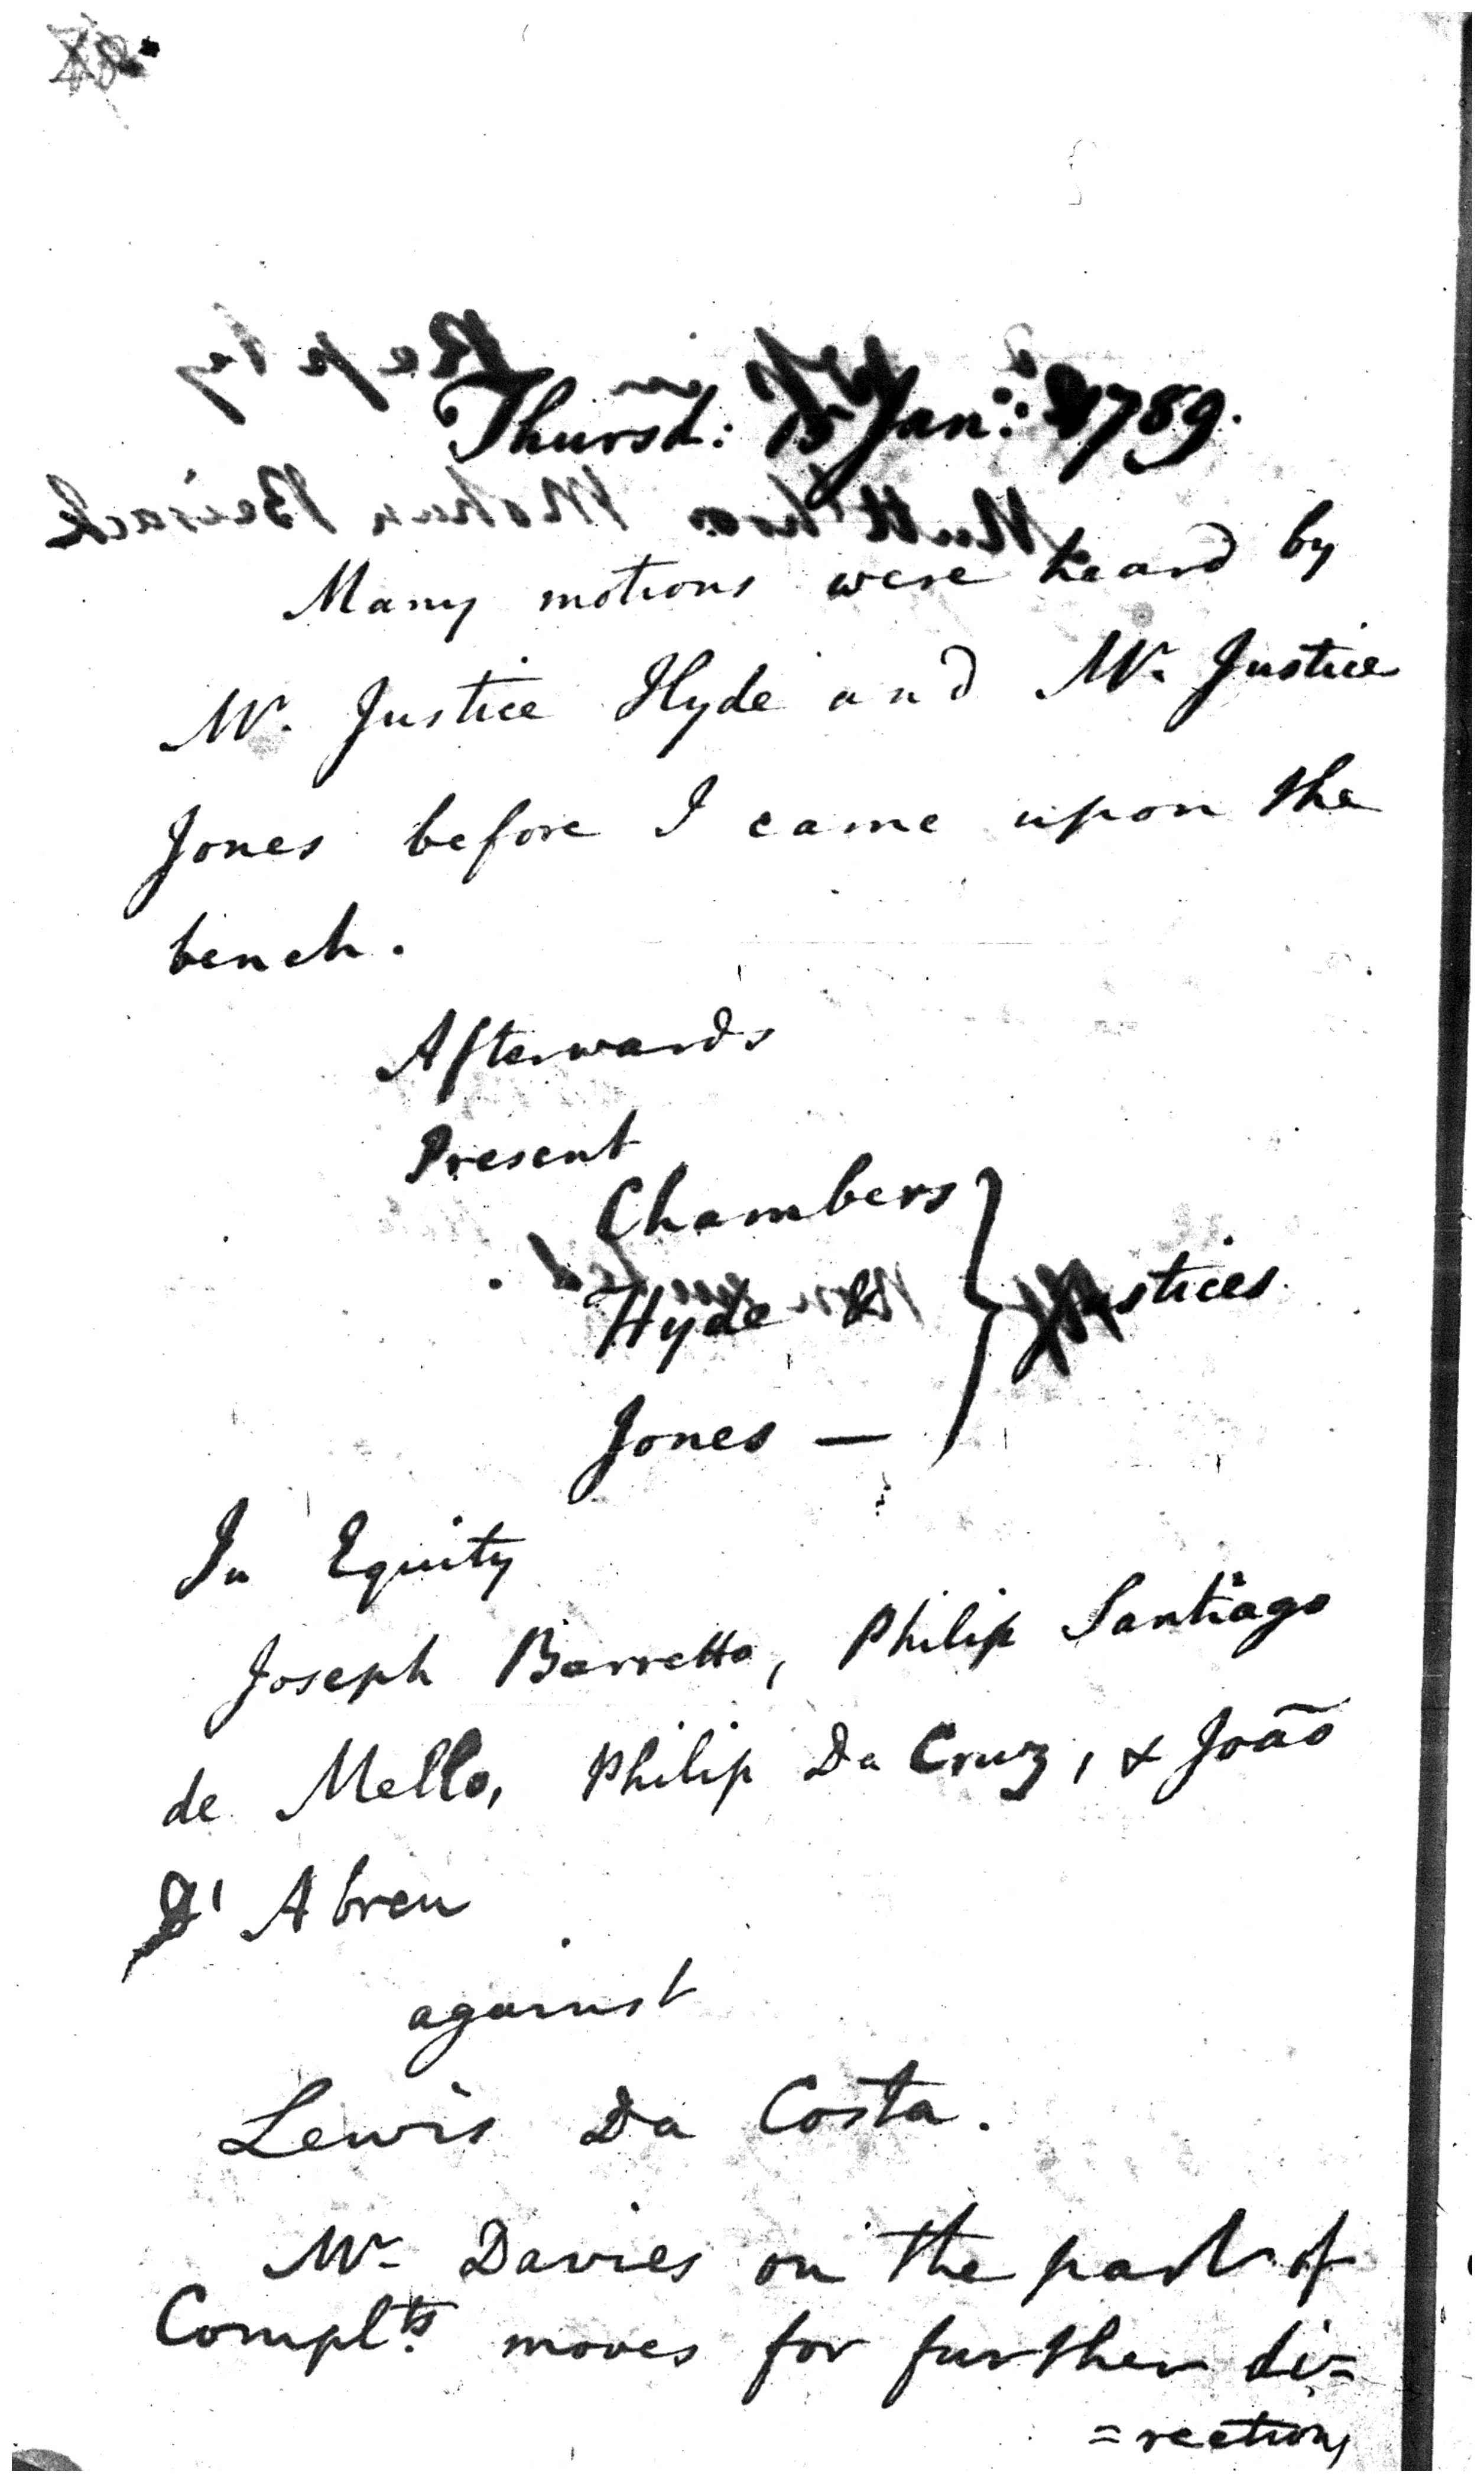 Thursd: 15 Jan: 1789.
Many motions were heard by
Mr. Justice Hyde and Mr. Justice
Jones before I came upon the
bench.
Afterwards
Present
Chambers
Hyde & } Justices
Jones —
In Equity
Joseph Barretto, Philip Santiago
de Mello, Philip Da Cruz, & João
D' Abreu
against
Lewis Da Costa.
Mr. Davies on the part of
Complts. moves for further di=
=rections